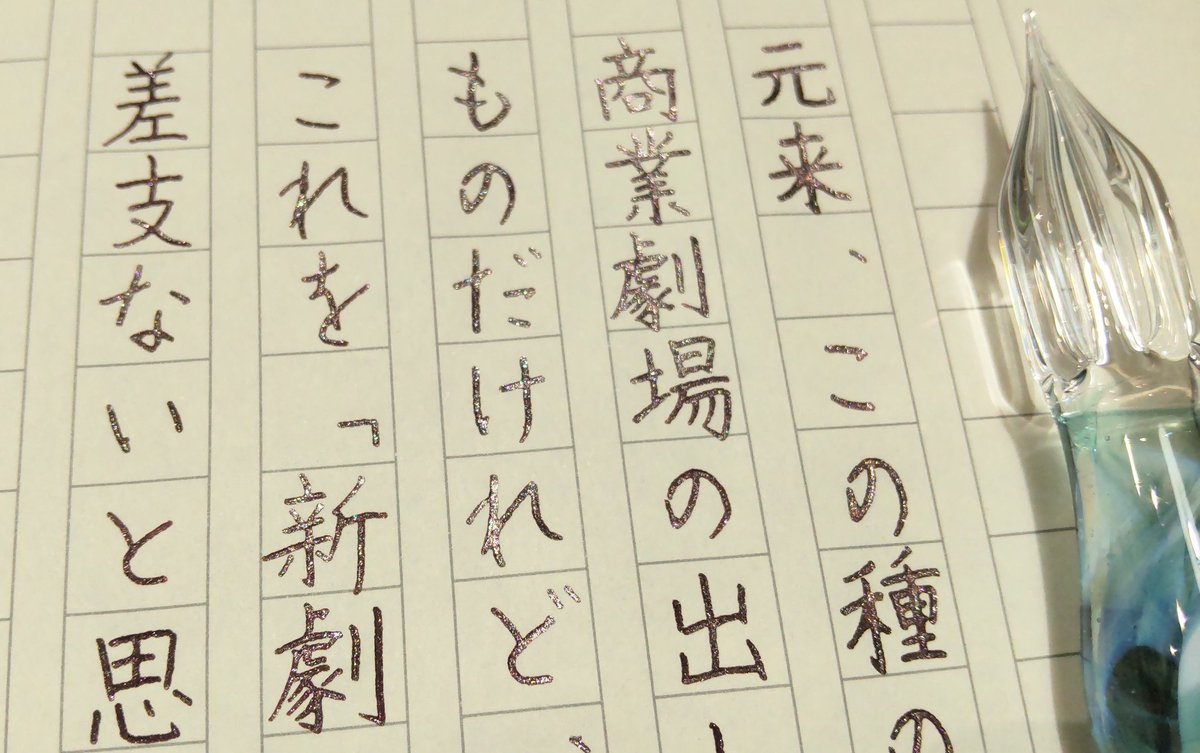 元来、この種の
商業劇場の出
ものだけれど、
これを「新劇
差支ないと思